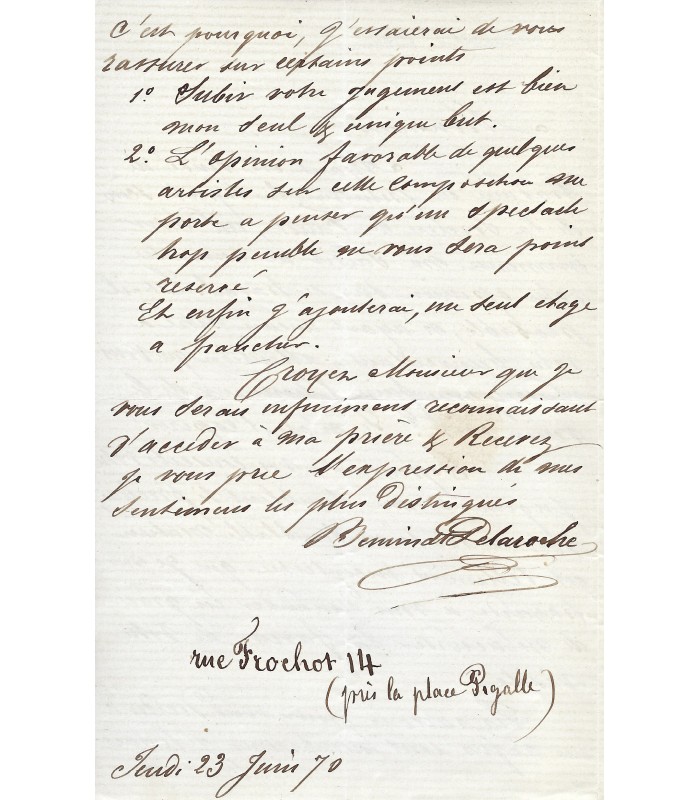 c'est pourquoi, j'essaierai de vous
rassurer sur certains points
1º Subir votre jugement est bien
mon seul & unique but.
2º L'opinion favorable de quelques
artistes sur cette composition me
porte a penser qu'un spectacle
trop penible ne vous sera point
reservé
Et enfin j'ajouterai, un seul etage
a franchir.
Croyez Monsieur que je
vous serais infiniment reconnaissant
d'acceder à ma prière & Recevez
je vous prie l'expression de mes
sentimens les plus distingués
Delaroche
rue Frochot 14
(près la place Pigalle)
Jeudi 23 Juin 70